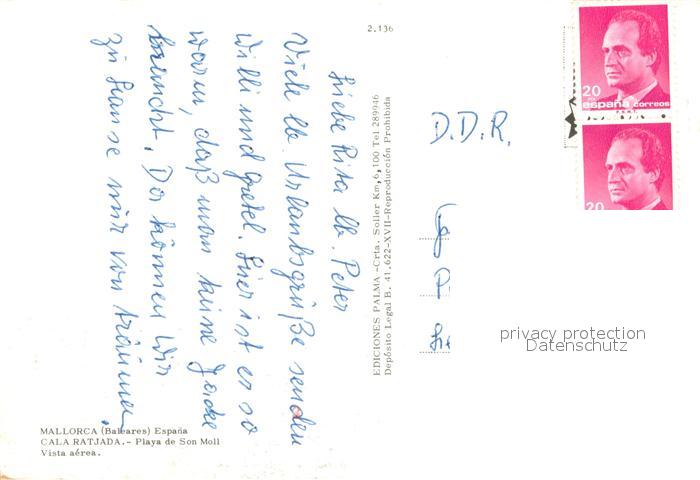 2.136
Liebe Rita lb. Peter
Viele lb. Urlaubsgrüße senden
Willi und Gretel. Hier ist es so
warm, daß man keine Jacke
braucht. Da können wir
zu Hause nur von träumen.
EDICIONES PALMA -Crta. Soller Km,6,100 Tel 289946
Depósito Legal B. 41.622-XVII-Reproducción Prohibida
MALLORCA (Baleares) España
CALA RATJADA.- Playa de Son Moll
Vista aérea.
20
españa correos
F.N.M.T.
20
D.D.R.
P
privacy protection
Datenschutz